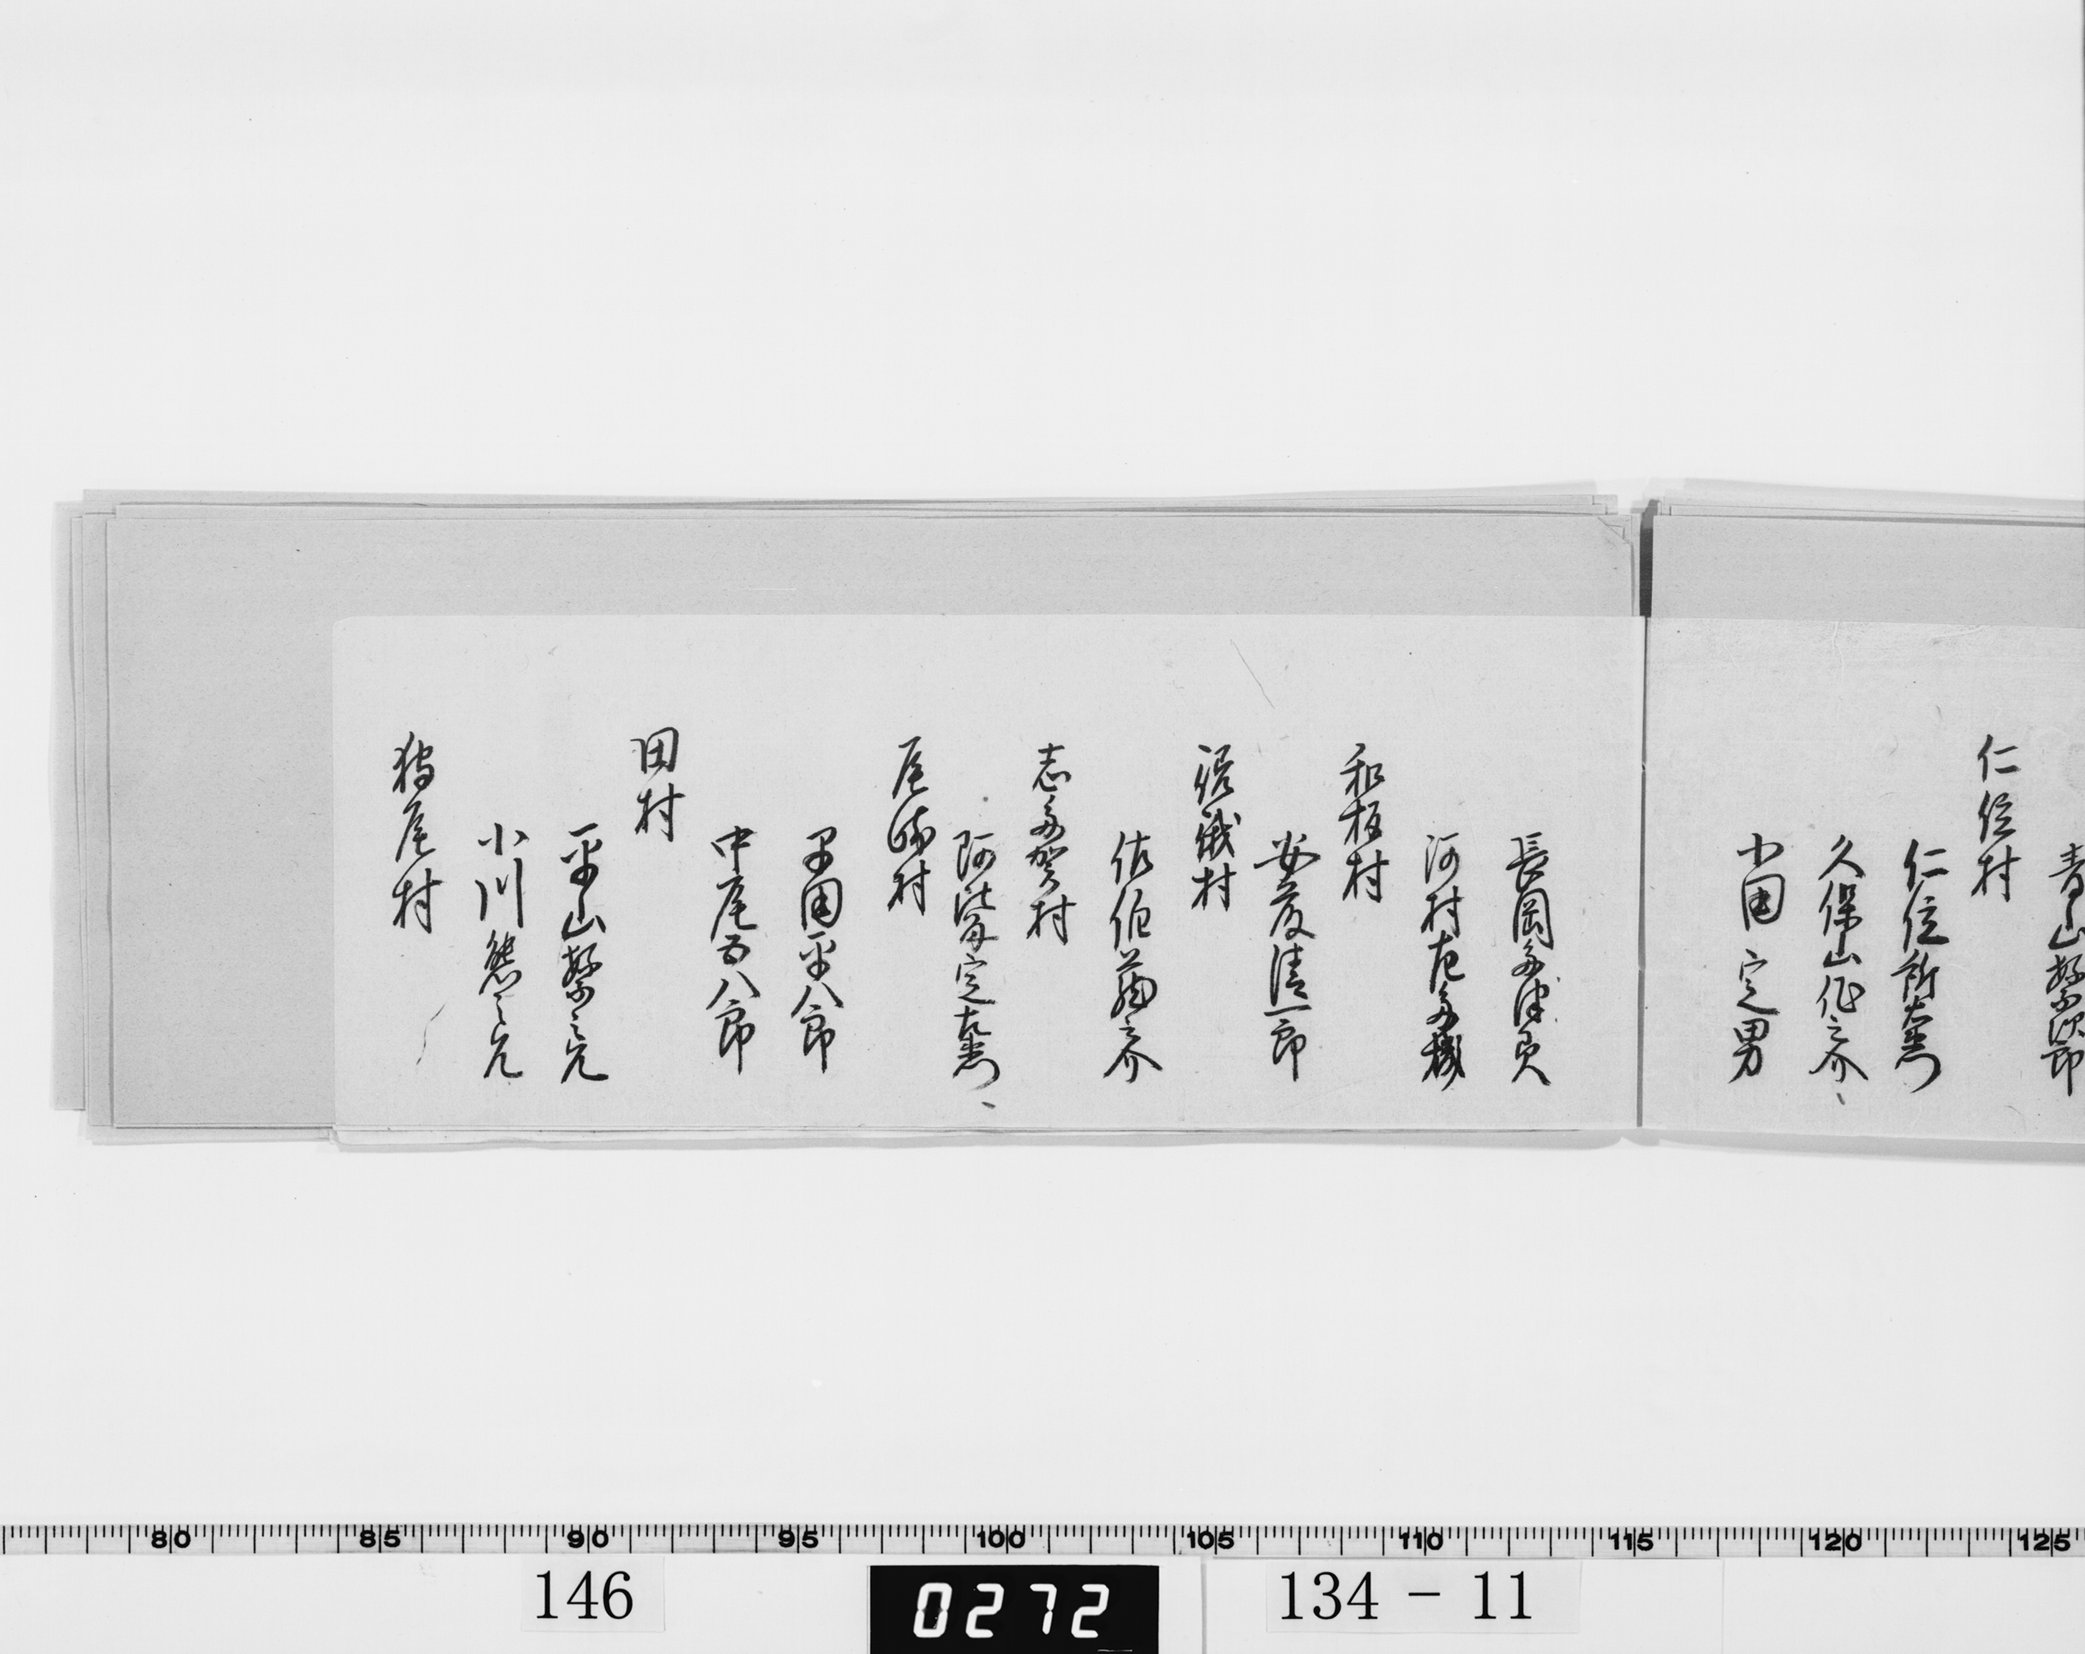 青山繁次郎
仁位村
仁位新左衛門
久保山作之介
小田 定男
長岡多津良
河村左多機
和板村
安藤清一郎
瀬村
佐伯藤之介
志多賀村
阿比留定右衛門
尾崎村
黒田平八郎
中尾百八郎
田村
平山繁之允
小川態之允
狩尾村
80 85 90 95 100 105 110 115 120 125
146
0272
134-11